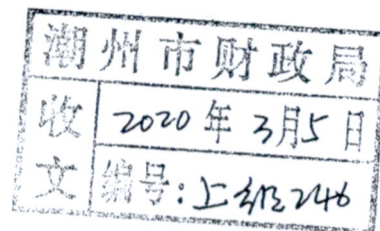 潮州市财政局
收文
2020年3月5日
编号:上级246